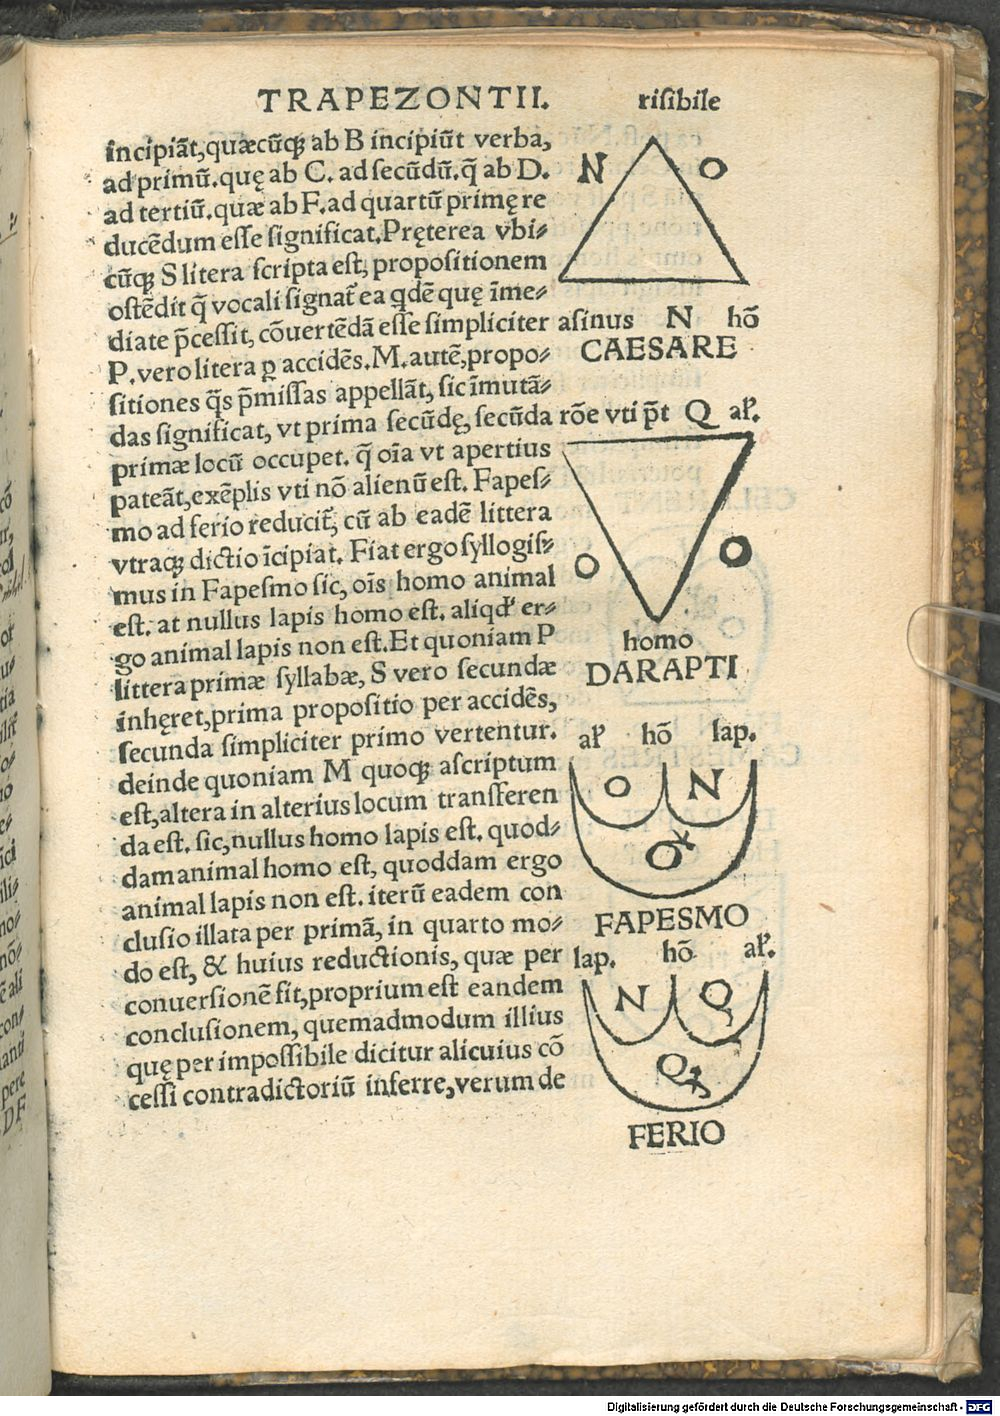 TRAPEZONTII.
incipiāt,quæcūqꝫ ab B incipiūt verba,
ad primū.quę ab C. ad secūdū.q̄ ab D.
ad tertiū.quæ ab F.ad quartū primę re
ducēdum esse significat.Pręterea vbi⸗
cūqꝫ S litera scripta est, propositionem
ostēdit q̄ vocali signat᷑ ea qdē quę īme⸗
diate p̄cessit, cōuertēdā esse simpliciter
P.vero litera ꝑ accidēs.M.autē,propo⸗
sitiones q̄s p̄missas appellāt, sic īmutā⸗
das significat, vt prima secūdę, secūda
primæ locū occupet. q̄ oīa vt apertius
pateāt,exēplis vti nō alienū est. Fapes⸗
mo ad ferio reducit᷑, cū ab eadē littera
vtraqꝫ dictio īcipiat. Fiat ergo syllogis⸗
mus in Fapesmo sic, oīs homo animal
est. at nullus lapis homo est. aliqd' er⸗
go animal lapis non est.Et quoniam P
littera primæ syllabæ, S vero secundæ
inhęret,prima propositio per accidēs,
secunda simpliciter primo vertentur.
deinde quoniam M quoqꝫ ascriptum
est,altera in alterius locum transferen
da est. sic,nullus homo lapis est. quod⸗
dam animal homo est, quoddam ergo
animal lapis non est. iterū eadem con
clusio illata per primā, in quarto mo⸗
do est, & huius reductionis, quæ per
conuersionē fit,proprium est eandem
conclusionem, quemadmodum illius
quę per impossibile dicitur alicuius cō
cessi contradictoriū inferre,verum de
risibile
N O
asinus N hō
CAESARE
rōe vti p̄t Q al'.
O O
homo
DARAPTI
al' hō lap.
O N
O
FAPESMO
lap. hō al'.
N Q
Q
FERIO
Digitalisierung gefördert durch die Deutsche Forschungsgemeinschaft - DFG